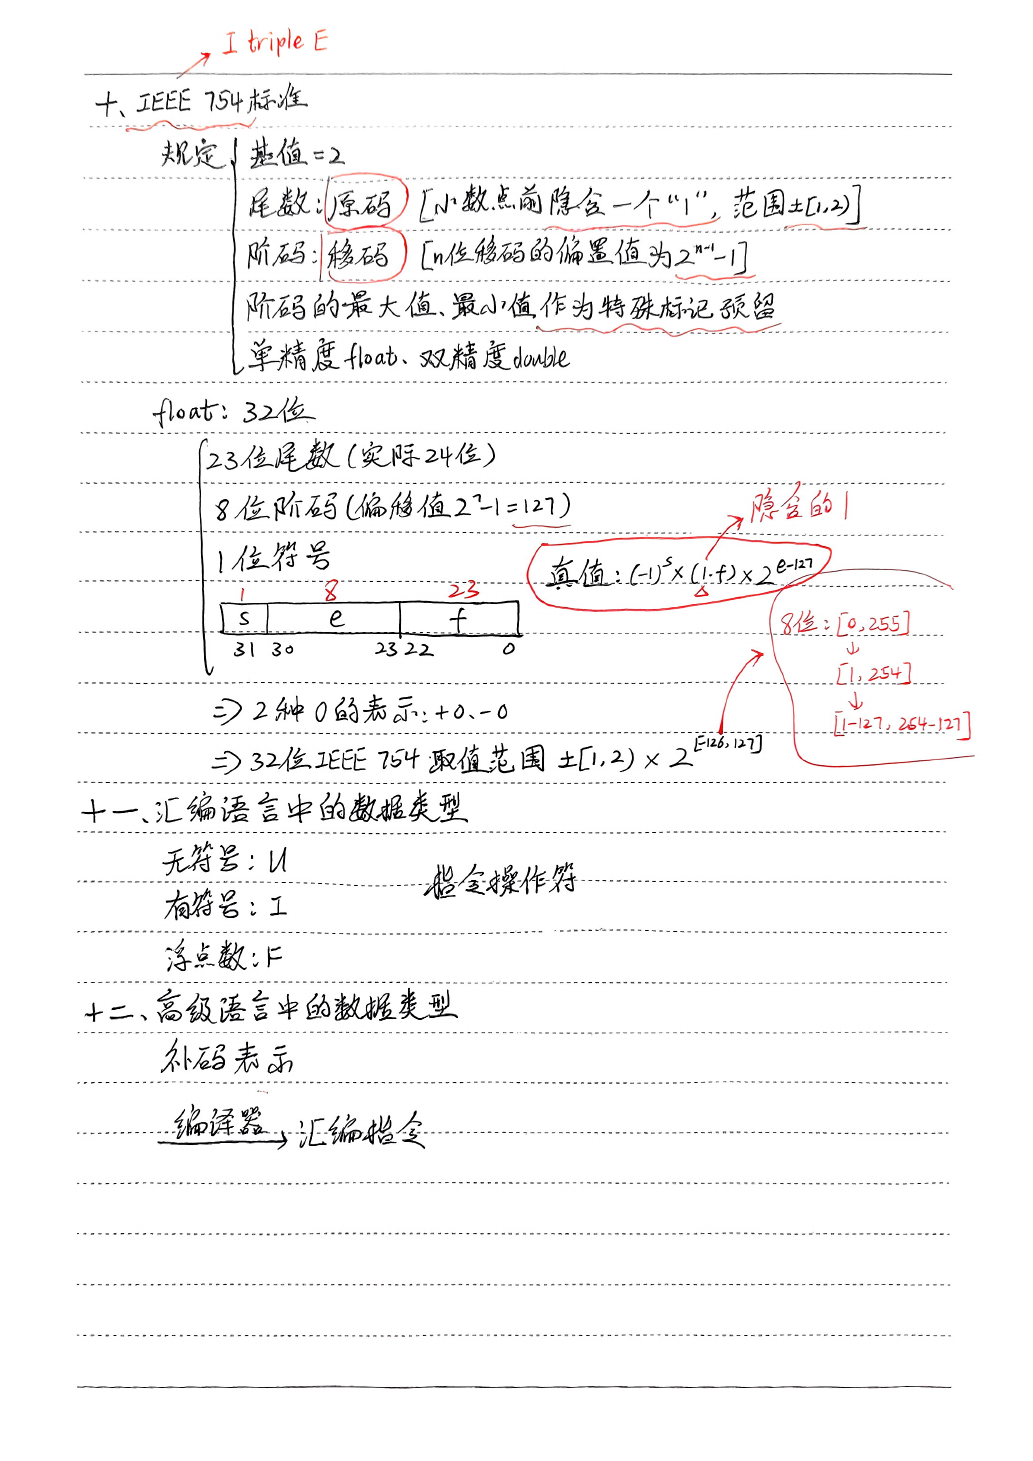 I triple E
十、IEEE 754标准
规定 基值=2
尾数:原码 [小数点前隐含一个"1", 范围±[1,2)]
阶码:移码 [n位移码的偏置值为2ⁿ⁻¹-1]
阶码的最大值、最小值作为特殊标记预留
单精度float、双精度double
float: 32位
23位尾数(实际24位)
8位阶码(偏移值2⁷-1=127)
隐含的1
1位符号
真值: (-1)ˢ×(1.f)×2ᵉ⁻¹²⁷
1 8 23
s e f
31 30 23 22 0
8位: [0,255]
↓
[1,254]
↓
[1-127, 254-127]
⇒ 2种0的表示: +0、-0
⇒ 32位IEEE 754取值范围 ±[1,2) × 2^[-126,127]
十一、汇编语言中的数据类型
无符号: U
指令操作符
有符号: I
浮点数: F
十二、高级语言中的数据类型
补码表示
编译器→汇编指令